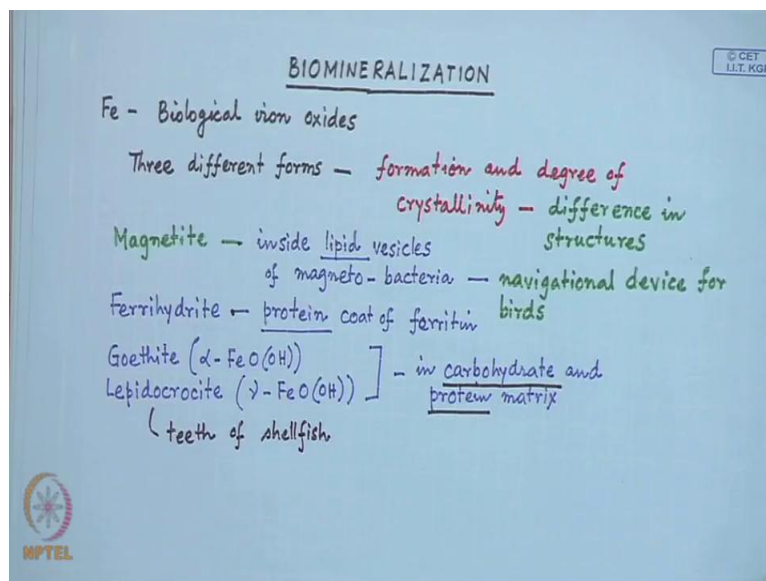 © CET
I.I.T. KGP
BIOMINERALIZATION
Fe - Biological iron oxides
Three different forms - formation and degree of
crystallinity - difference in
structures
Magnetite - inside lipid vesicles
of magneto-bacteria - navigational device for
birds
Ferrihydrite - protein coat of ferritin
Goethite (α-FeO(OH))
Lepidocrocite (γ-FeO(OH))
] - in carbohydrate and
protein matrix
teeth of shellfish
NPTEL